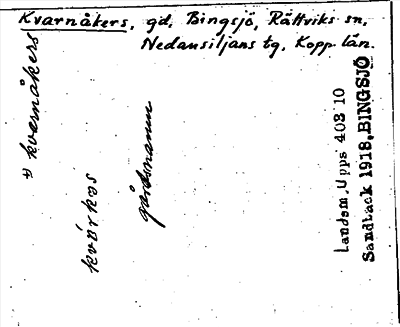 Kvarnåkers, gd, Bingsjö, Rättviks sn,
Nedansiljans tg, Kopp. län.
kvarnåkers
kvárkas
gårdsnamn
Landsm. Upps 403 10
Sandbäck 1918, BINGSJÖ